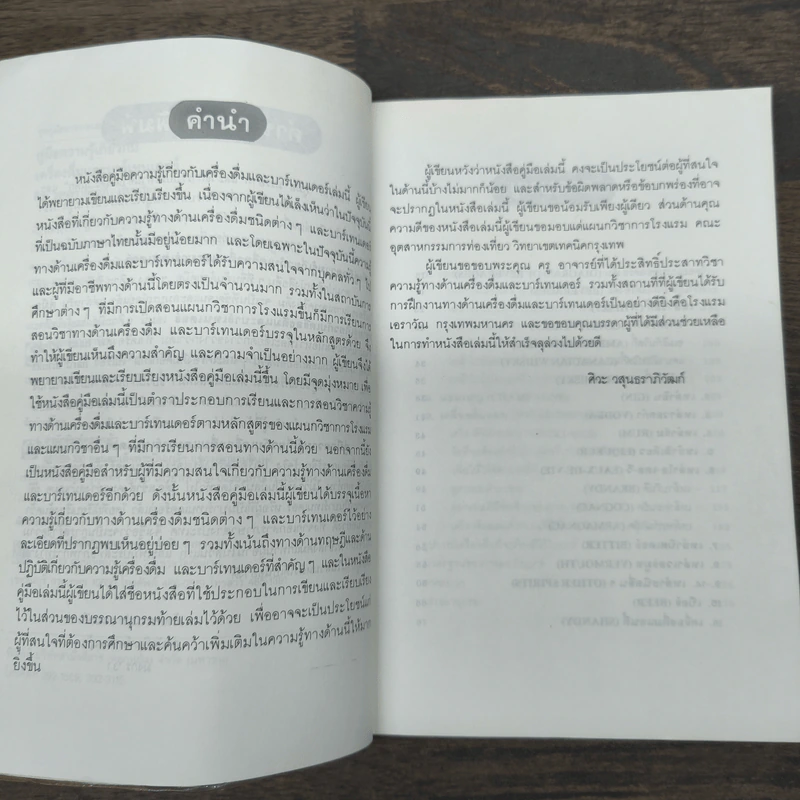 คำนำ
หนังสือคู่มือความรู้เกี่ยวกับเครื่องดื่มและบาร์เทนเดอร์เล่มนี้ ผู้เขียน
ได้พยายามเขียนและเรียบเรียงขึ้น เนื่องจากผู้เขียนได้เล็งเห็นว่าในปัจจุบันนี้
หนังสือที่เกี่ยวกับความรู้ทางด้านเครื่องดื่มชนิดต่าง ๆ และบาร์เทนเดอร์
ที่เป็นฉบับภาษาไทยนั้นมีอยู่น้อยมาก และโดยเฉพาะในปัจจุบันนี้ความรู้
ทางด้านเครื่องดื่มและบาร์เทนเดอร์ได้รับความสนใจจากบุคคลทั่ว ๆ ไป
และผู้ที่มีอาชีพทางด้านนี้โดยตรงเป็นจำนวนมาก รวมทั้งในสถาบันการ
ศึกษาต่าง ๆ ที่มีการเปิดสอนแผนกวิชาการโรงแรมขึ้นก็มีการเรียนการ
สอนวิชาทางด้านเครื่องดื่ม และบาร์เทนเดอร์บรรจุในหลักสูตรด้วย จึง
ทำให้ผู้เขียนเห็นถึงความสำคัญ และความจำเป็นอย่างมาก ผู้เขียนจึงได้
พยายามเขียนและเรียบเรียงหนังสือคู่มือเล่มนี้ขึ้น โดยมีจุดมุ่งหมาย เพื่อ
ใช้หนังสือคู่มือเล่มนี้เป็นตำราประกอบการเรียนและการสอนวิชาความรู้
ทางด้านเครื่องดื่มและบาร์เทนเดอร์ตามหลักสูตรของแผนกวิชาการโรงแรม
และแผนกวิชาอื่น ๆ ที่มีการเรียนการสอนทางด้านนี้ด้วย นอกจากนี้ยัง
เป็นหนังสือคู่มือสำหรับผู้ที่มีความสนใจเกี่ยวกับความรู้ทางด้านเครื่องดื่ม
และบาร์เทนเดอร์อีกด้วย ดังนั้นหนังสือคู่มือเล่มนี้ผู้เขียนได้บรรจุเนื้อหา
ความรู้เกี่ยวกับทางด้านเครื่องดื่มชนิดต่าง ๆ และบาร์เทนเดอร์ไว้อย่าง
ละเอียดที่ปรากฏพบเห็นอยู่บ่อย ๆ รวมทั้งเน้นถึงทางด้านทฤษฎีและด้าน
ปฏิบัติเกี่ยวกับความรู้เครื่องดื่ม และบาร์เทนเดอร์ที่สำคัญ ๆ และในหนังสือ
คู่มือเล่มนี้ผู้เขียนได้ใส่ชื่อหนังสือที่ใช้ประกอบในการเขียนและเรียบเรียง
ไว้ในส่วนของบรรณานุกรมท้ายเล่มไว้ด้วย เพื่ออาจจะเป็นประโยชน์แก่
ผู้ที่สนใจที่ต้องการศึกษาและค้นคว้าเพิ่มเติมในความรู้ทางด้านนี้ให้มาก
ยิ่งขึ้น
ผู้เขียนหวังว่าหนังสือคู่มือเล่มนี้ คงจะเป็นประโยชน์ต่อผู้ที่สนใจ
ในด้านนี้บ้างไม่มากก็น้อย และสำหรับข้อผิดพลาดหรือข้อบกพร่องที่อาจ
จะปรากฏในหนังสือเล่มนี้ ผู้เขียนขอน้อมรับเพียงผู้เดียว ส่วนด้านคุณ
ความดีของหนังสือเล่มนี้ผู้เขียนขอมอบแด่แผนกวิชาการโรงแรม คณะ
อุตสาหกรรมการท่องเที่ยว วิทยาเขตเทคนิคกรุงเทพ
ผู้เขียนขอขอบพระคุณ ครู อาจารย์ที่ได้ประสิทธิ์ประสาทวิชา
ความรู้ทางด้านเครื่องดื่มและบาร์เทนเดอร์ รวมทั้งสถานที่ที่ผู้เขียนได้รับ
การฝึกงานทางด้านเครื่องดื่มและบาร์เทนเดอร์เป็นอย่างดียิ่งคือโรงแรม
เอราวัณ กรุงเทพมหานคร และขอขอบคุณบรรดาผู้ที่ได้มีส่วนช่วยเหลือ
ในการทำหนังสือเล่มนี้ให้สำเร็จลุล่วงไปด้วยดี
ศิวะ วสุนธราภิวัฒก์